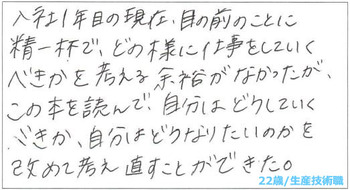 入社1年目の現在、目の前のことに
精一杯で、どの様に仕事をしていく
べきかを考える余裕がなかったが、
この本を読んで、自分はどうしていく
べきか、自分はどうなりたいのかを
改めて考え直すことができた。
22歳/生産技術職